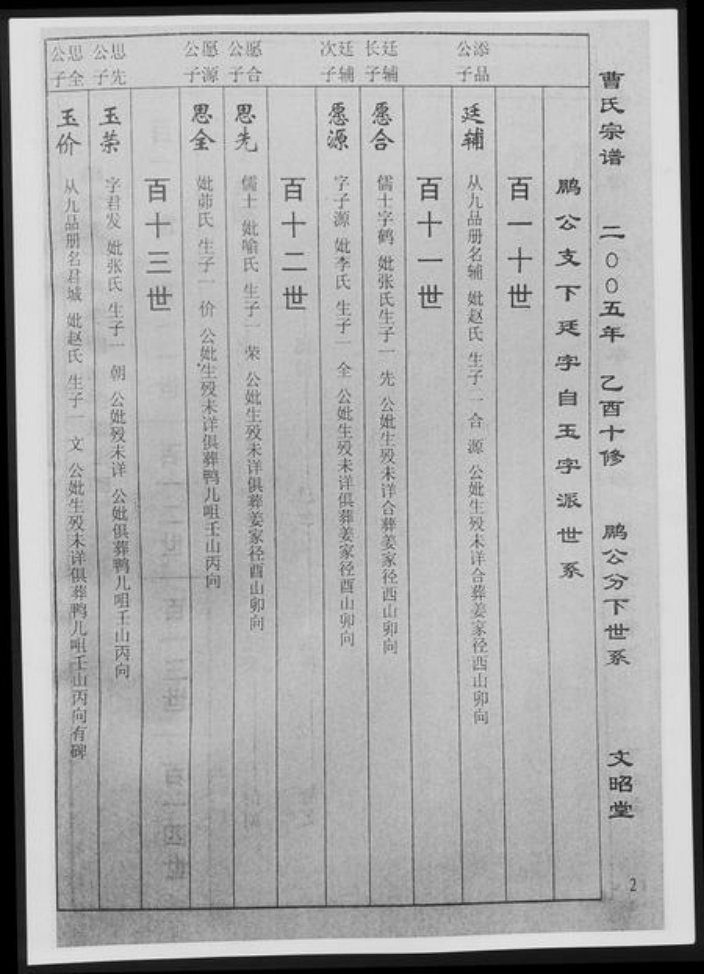 曹氏宗谱 二〇〇五年 乙酉十修 鹏公分下世系 文昭堂
2
鹏公支下廷字自玉字派世系
百一十世
添品公子
廷辅 从九品册名辅 妣赵氏 生子二 合 源 公妣生殁未详合葬姜家径酉山卯向
百十一世
廷辅长子
愿合 儒士字鹤 妣张氏生子一 先 公妣生殁未详合葬姜家径酉山卯向
廷辅次子
愿源 字子源 妣李氏 生子一 全 公妣生殁未详俱葬姜家径酉山卯向
百十二世
愿合公子
思先 儒士 妣喻氏 生子一 荣 公妣生殁未详俱葬姜家径酉山卯向
愿源公子
思全 妣茆氏 生子一 价 公妣生殁未详俱葬鸭儿咀壬山丙向
百十三世
思先公子
玉荣 字君发 妣张氏 生子一 朝 公妣殁未详 公妣俱葬鸭儿咀壬山丙向
思全公子
玉价 从九品册名君城 妣赵氏 生子一 文 公妣生殁未详俱葬鸭儿咀壬山丙向有碑